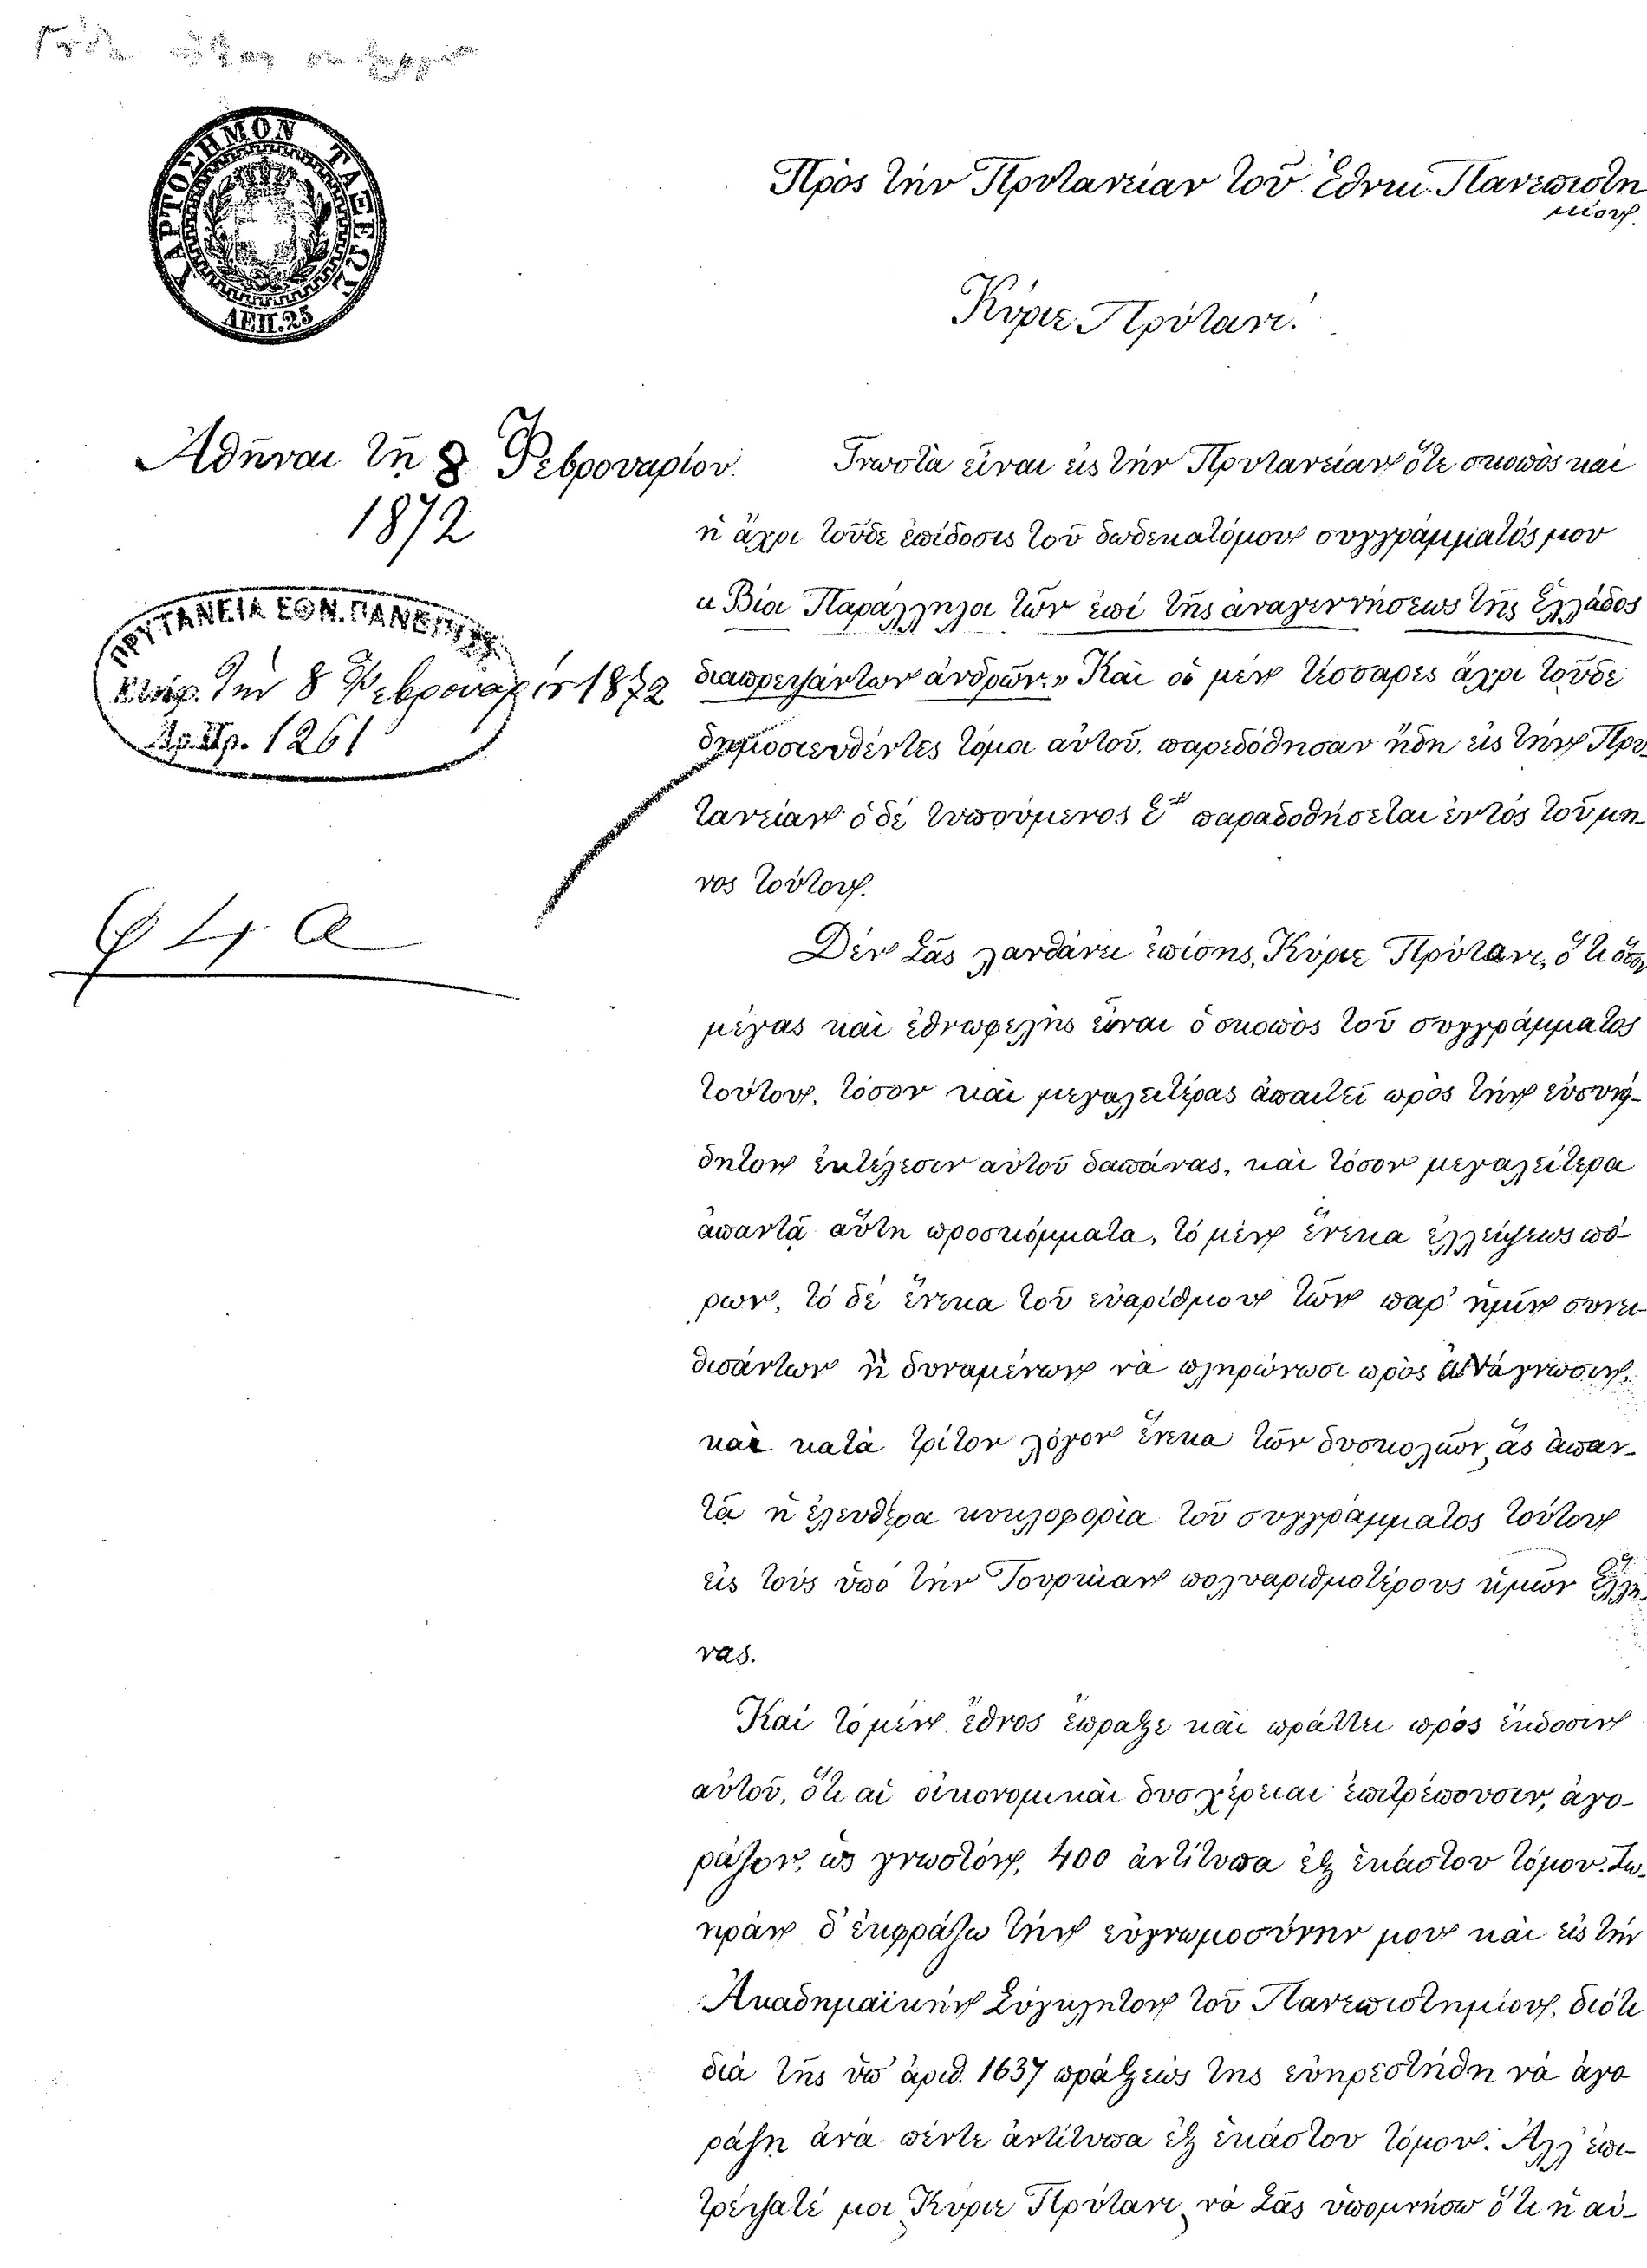 ΧΑΡΤΟΣΗΜΟΝ ΤΑΞΕΩΣ
ΛΕΠ. 25
Πρὸς τὴν Πρυτανείαν τοῦ Ἐθνικ. Πανεπιστη
μίου.
Κύριε Πρύτανι!
Ἀθῆναι τῇ 8 Φεβρουαρίου.
1872
ΠΡΥΤΑΝΕΙΑ ΕΘΝ. ΠΑΝΕΠΙΣΤ.
τὴν 8 Φεβρουαρίου 1872
Ἀρ. Πρ. 1261
φ 4 α
Γνωστὰ εἶναι εἰς τὴν Πρυτανείαν ὅτε σκοπὸς καὶ
ἡ ἄχρι τοῦδε ἐπίδοσις τοῦ δωδεκατόμου συγγράμματός μου
« Βίοι Παράλληλοι τῶν ἐπὶ τῆς ἀναγεννήσεως τῆς Ἑλλάδος
διαπρεψάντων ἀνδρῶν.» Καὶ οἱ μὲν τέσσαρες ἄχρι τοῦδε
δημοσιευθέντες τόμοι αὐτοῦ, παρεδόθησαν ἤδη εἰς τὴν Πρυ-
τανείαν ὁ δὲ τυπούμενος Ε῎ παραδοθήσεται ἐντὸς τοῦ μη-
νὸς τούτου.
Δὲν Σᾶς λανθάνει ἐπίσης, Κύριε Πρύτανι, ὅτι ὅσον
μέγας καὶ ἐθνωφελὴς εἶναι ὁ σκοπὸς τοῦ συγγράμματος
τούτου, τόσον καὶ μεγαλειτέρας ἀπαιτεῖ πρὸς τὴν εὐσυνεί-
δητον ἐκτέλεσιν αὐτοῦ δαπάνας, καὶ τόσον μεγαλείτερα
ἀπαντᾷ αὕτη προσκόμματα, τὸ μὲν ἕνεκα ἐλλείψεως πό-
ρων, τὸ δὲ ἕνεκα τοῦ εὐαρίθμου τῶν παρ' ἡμῖν συνει-
θισάντων ἢ δυναμένων νὰ πληρώνωσι πρὸς ἀνάγνωσιν,
καὶ κατὰ τρίτον λόγον ἕνεκα τῶν δυσκολιῶν, ἃς ἀπαν-
τᾷ ἡ ἐλευθέρα κυκλοφορία τοῦ συγγράμματος τούτου
εἰς τοὺς ὑπὸ τὴν Τουρκίαν πολυαριθμοτέρους ἡμῶν Ἕλλη-
νας.
Καὶ τὸ μὲν ἔθνος ἔπραξε καὶ πράττει πρὸς ἔκδοσιν
αὐτοῦ, ὅτι αἱ οἰκονομικαὶ δυσχέρειαι ἐπιτρέπουσιν, ἀγο-
ράζον, ὡς γνωστὸν, 400 ἀντίτυπα ἐξ ἑκάστου τόμου. Ζω-
ηρὰν δ' ἐκφράζω τὴν εὐγνωμοσύνην μου καὶ εἰς τὴν
Ἀκαδημαϊκὴν Σύγκλητον τοῦ Πανεπιστημίου, διότι
διὰ τῆς ὑπ' ἀριθ. 1637 πράξεώς της εὐηρεστήθη νὰ ἀγο
ράζῃ ἀνὰ πέντε ἀντίτυπα ἐξ ἑκάστου τόμου. Ἀλλ' ἐπι-
τρέψατέ μοι, Κύριε Πρύτανι, νὰ Σᾶς ὑπομνήσω ὅτι ἡ αὐ-